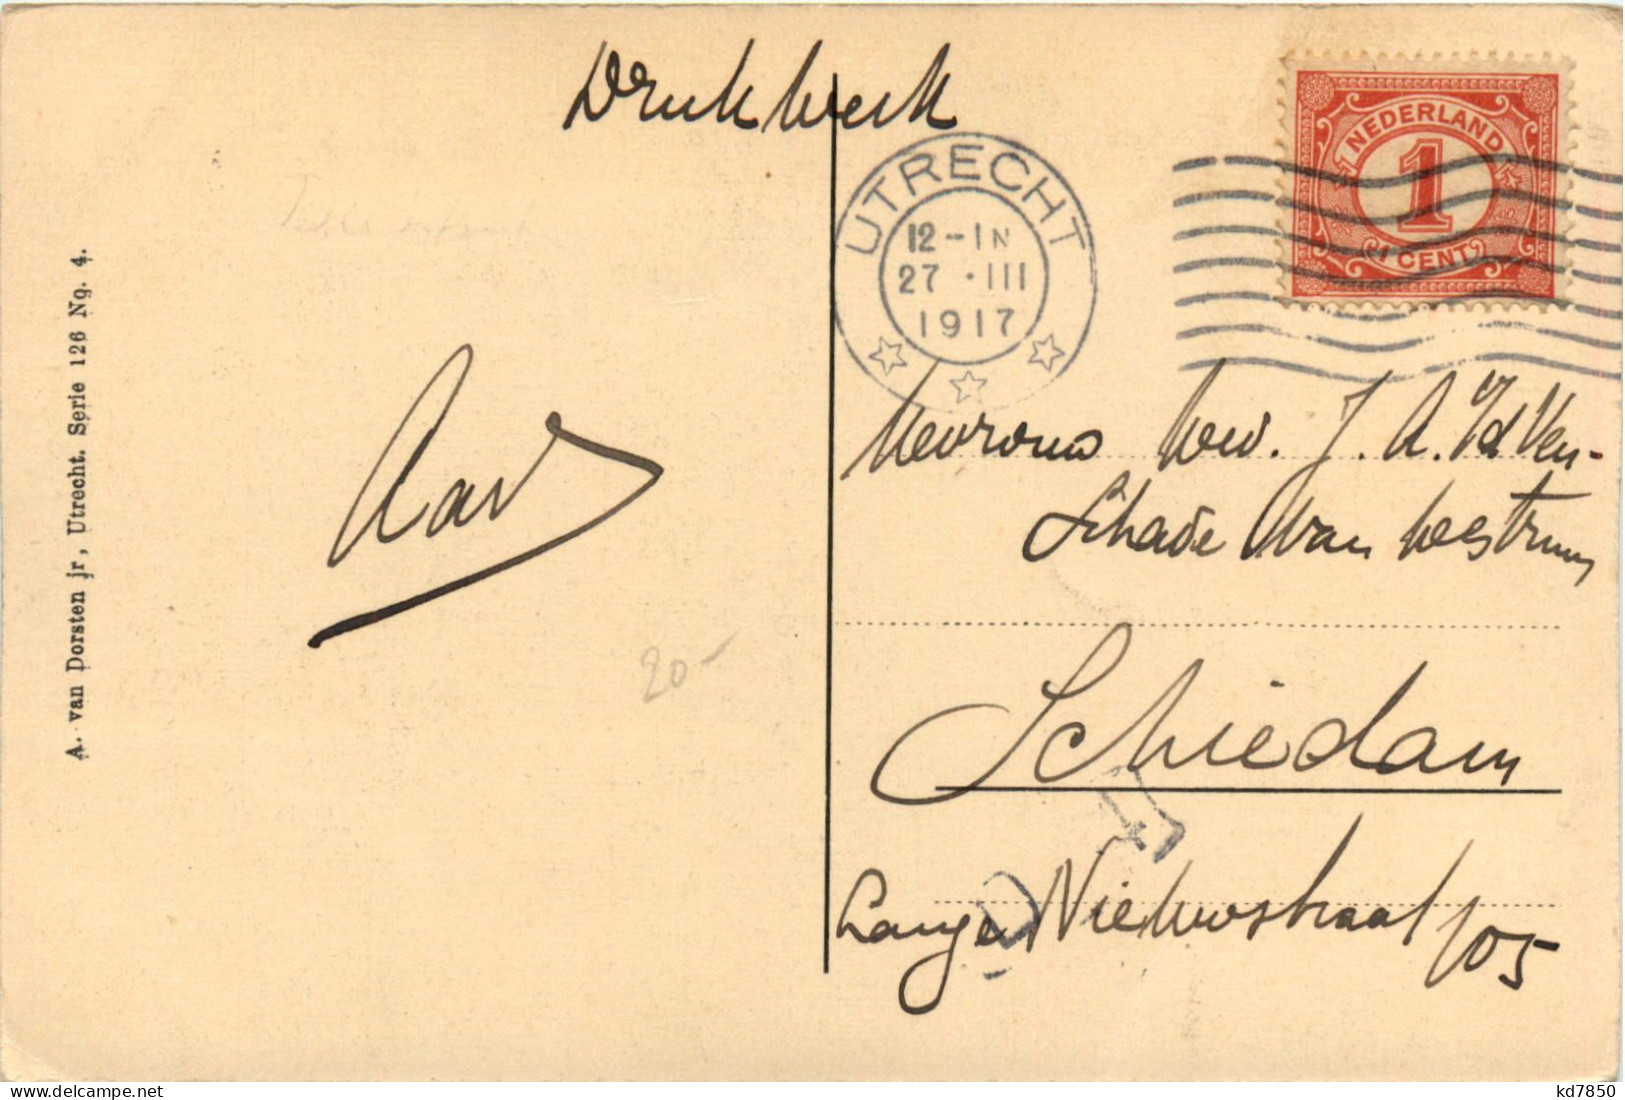 Drukwerk
UTRECHT
12-1N
27 · III
1917
NEDERLAND
1
1 CENT
A. van Dorsten jr, Utrecht. Serie 126 No. 4.
Mevrouw Wed. J. A. v/d Ven-
Schade van Westrum
Schiedam
Lange Nieuwstraat 105
20-
kd7850